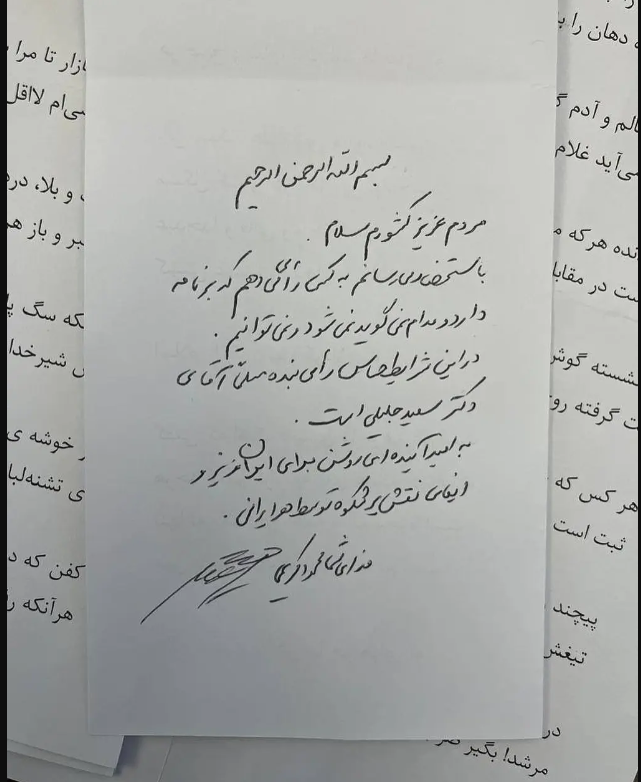 بسم الله الرحمن الرحیم
مردم عزیز کشورم سلام.
با استحضار می‌رسانم به کسی رأی می‌دهم که برنامه
دارد و مدام نمی گوید نمی شود و نمی توانیم.
در این شرایط حساس رأی بنده جناب آقای
دکتر سعید جلیلی است.
به امید آینده ای روشن برای ایران عزیز و
ایفای نقش پرشکوه توسط هر ایرانی.
فدای شما محمود کریمی
ه دهان را
بازار تا مرا
سی‌ام لااقل
الم و آدم
می‌آید غلام
و بلا، در
بر و باز هم
نده هرکه
ست در مقابل
که سگ
شیرخدا
نشسته گوش
ت گرفته رو
خوشه ی
ی تشنه‌لبا
هر کس که
ثبت است
کفن که د
هرآنکه
پیچند
تیغش
در
مرشد! بگیر